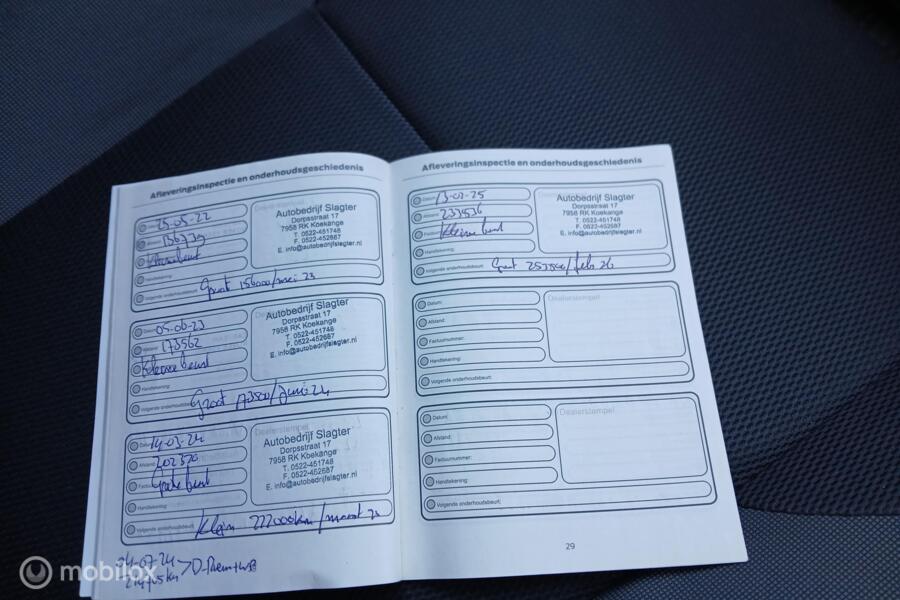 Afleveringsinspectie en onderhoudsgeschiedenis
Datum: 25-05-22
Afstand: 136739
Handtekening:
Volgende onderhoudsbeurt: Groot 156000/mei 23
Autobedrijf Slagter
Dorpsstraat 17
7958 RK Koekange
T. 0522-451748
F. 0522-452687
E. info@autobedrijfslagter.nl
Datum: 05-06-23
Afstand: 173562
Kleine beurt
Handtekening:
Volgende onderhoudsbeurt: Groot /Juni 24
Autobedrijf Slagter
Dorpsstraat 17
7958 RK Koekange
T. 0522-451748
F. 0522-452687
E. info@autobedrijfslagter.nl
Datum: 14-03-24
Afstand: 202370
Grote beurt
Handtekening:
Volgende onderhoudsbeurt: Klein 222000km/maart
Dealerstempel
Autobedrijf Slagter
Dorpsstraat 17
7958 RK Koekange
T. 0522-451748
F. 0522-452687
E. info@autobedrijfslagter.nl
04-07-24
Afleveringsinspectie en onderhoudsgeschiedenis
Datum: 13-02-25
Afstand: 233536
Kleine beurt
Handtekening:
Volgende onderhoudsbeurt: Groot /feb 26
Autobedrijf Slagter
Dorpsstraat 17
7958 RK Koekange
T. 0522-451748
F. 0522-452687
E. info@autobedrijfslagter.nl
Datum:
Afstand:
Factuurnummer:
Handtekening:
Volgende onderhoudsbeurt:
Dealerstempel
Datum:
Afstand:
Factuurnummer:
Handtekening:
Volgende onderhoudsbeurt:
Dealerstempel
29
mobilox